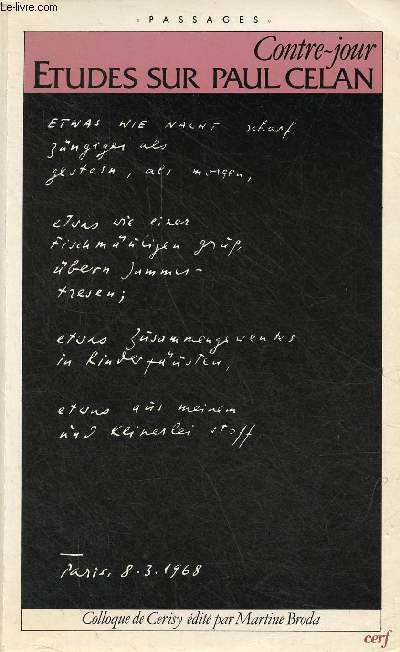 Le-livre.com
« PASSAGES »
Contre-jour
ETUDES SUR PAUL CELAN
ETWAS WIE NACHT scharf
züngiger als
gestern, als morgen,
etwas wie einer
Fischmäuligen gruß,
übern Jammer-
tresen;
etwas zusammengewehtes
in Kinderfäusten,
etwas aus meinem
und keinerlei stoff
Paris, 8.3.1968
Colloque de Cerisy édité par Martine Broda
cerf